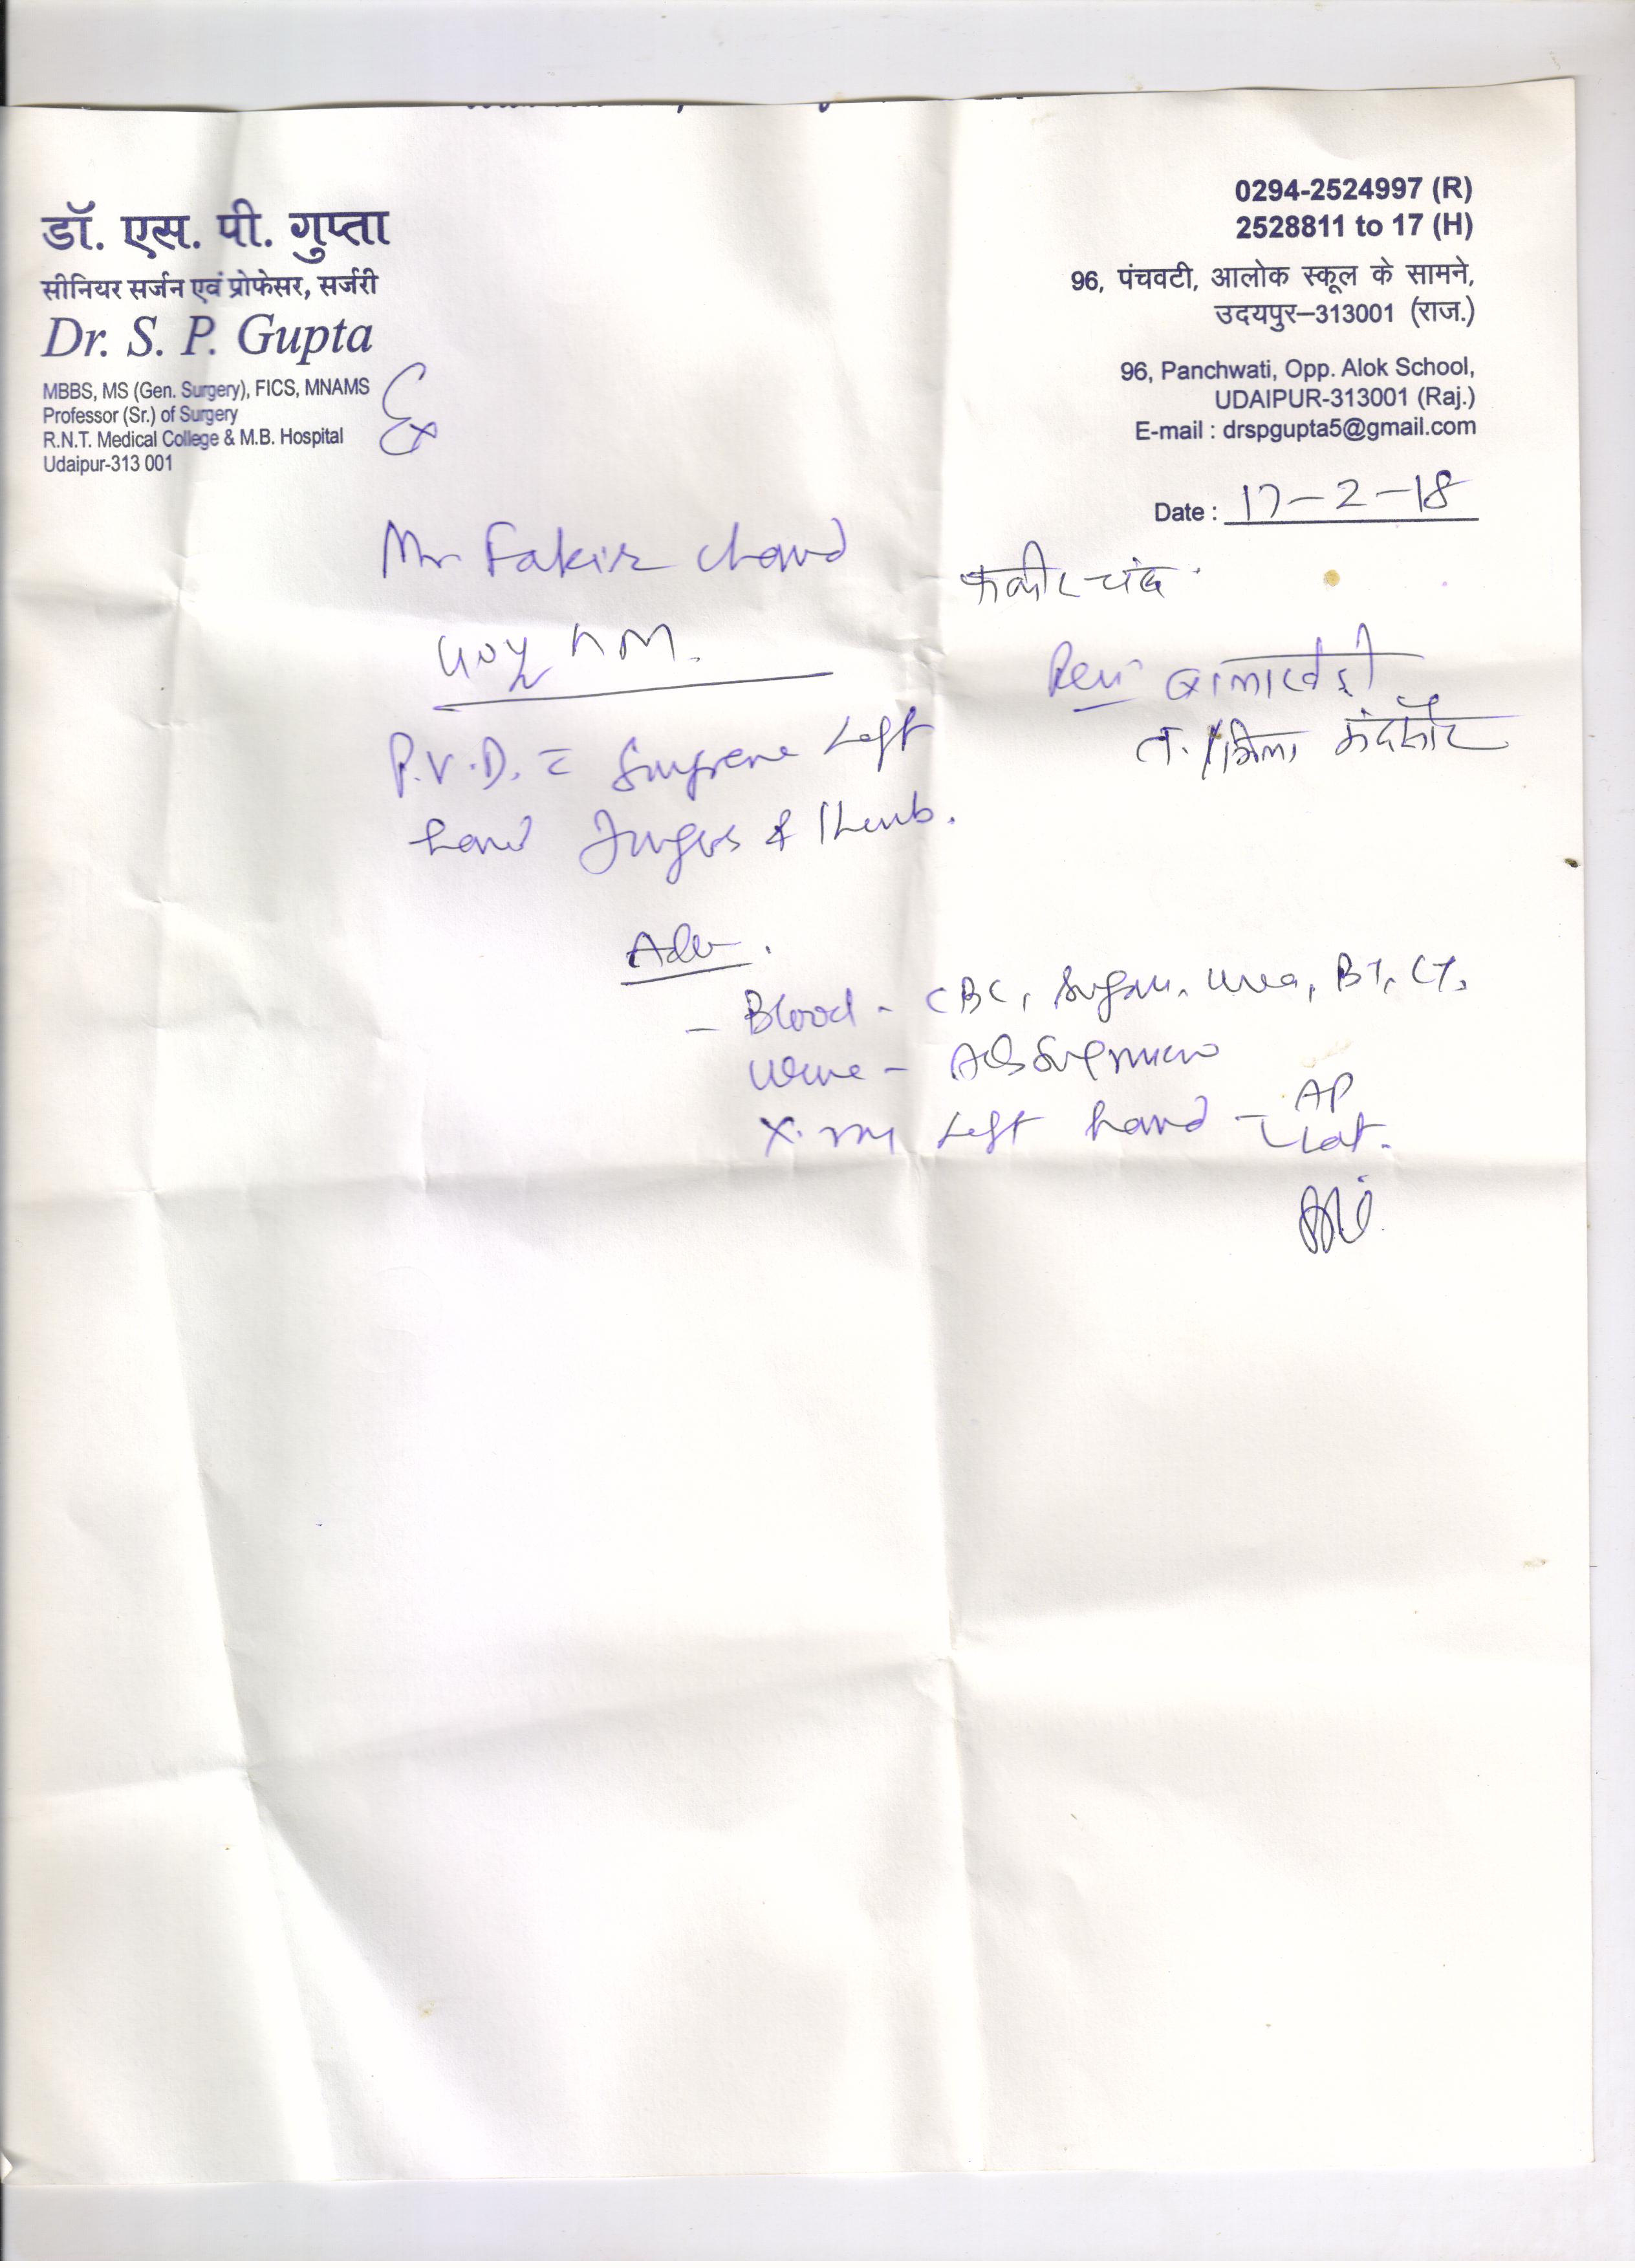 डॉ. एस. पी. गुप्ता
सीनियर सर्जन एवं प्रोफेसर, सर्जरी
Dr. S. P. Gupta
MBBS, MS (Gen. Surgery), FICS, MNAMS
Professor (Sr.) of Surgery
R.N.T. Medical College & M.B. Hospital
Udaipur-313 001
0294-2524997 (R)
2528811 to 17 (H)
96, पंचवटी, आलोक स्कूल के सामने,
उदयपुर–313001 (राज.)
96, Panchwati, Opp. Alok School,
UDAIPUR-313001 (Raj.)
E-mail : drspgupta5@gmail.com
Date : 17-2-18
Mr Fakir Chand
फकीर चंद
P.V.D. = Left
hand Fingers & Thumb.
Adv.
- Blood - CBC, Sugar, Urea, BT, CT.
Urine -
X-ray Left hand - AP
Lat.